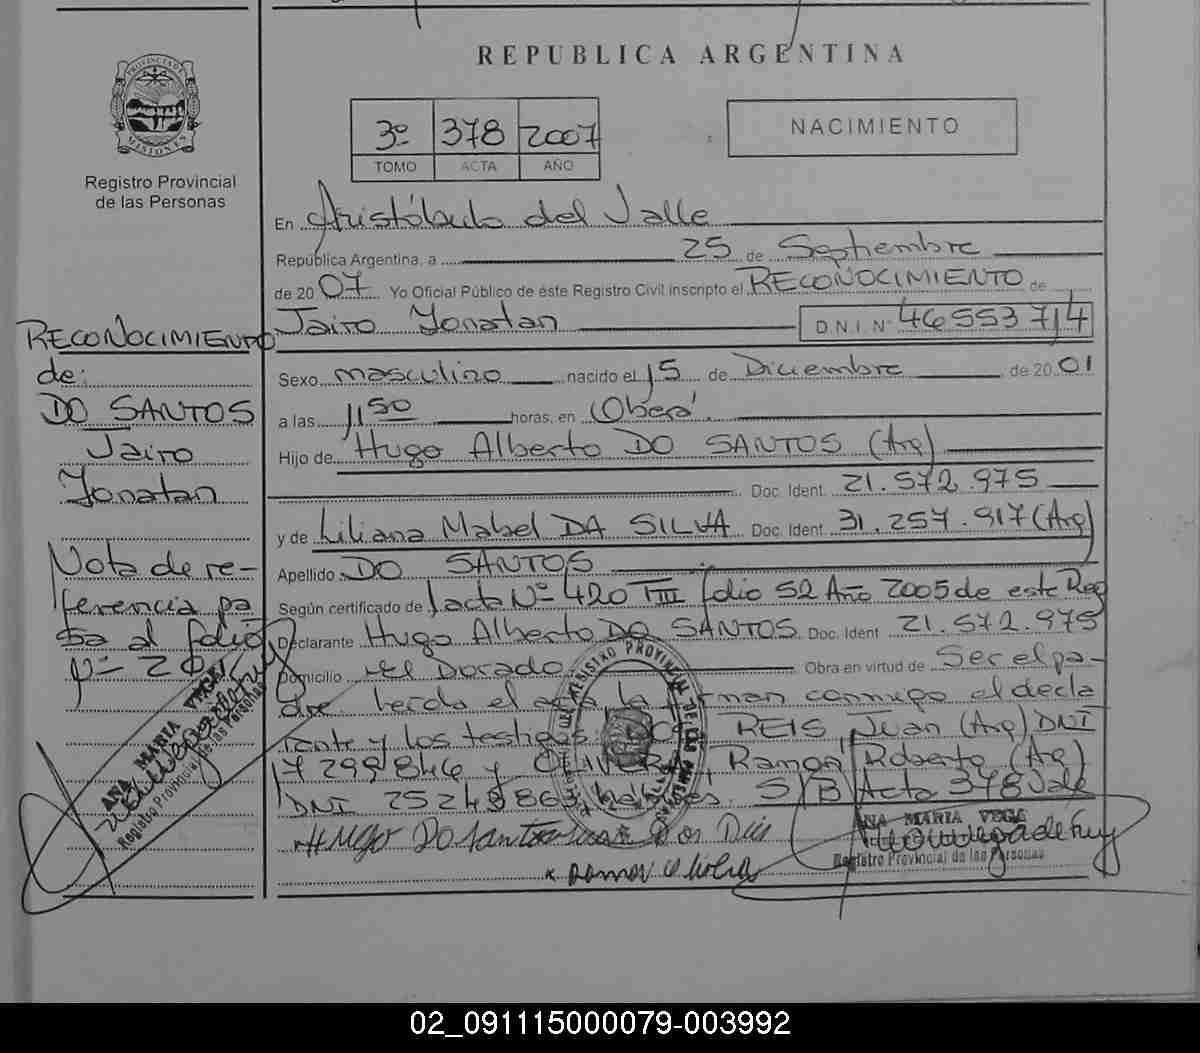 REPUBLICA ARGENTINA
PROVINCIA DE MISIONES
Registro Provincial
de las Personas
3º 378 2007
TOMO ACTA AÑO
NACIMIENTO
En Aristóbulo del Valle
República Argentina, a 25 de Septiembre
de 2007 Yo Oficial Público de éste Registro Civil inscripto el RECONOCIMIENTO de
Jairo Yonatan D.N.I. Nº 46553714
Sexo masculino nacido el 15 de Diciembre de 2001
a las 11,50 horas, en Oberá.
Hijo de Hugo Alberto DO SANTOS (Arg)
Doc. Ident. 21.572.975
y de Liliana Mabel DA SILVA Doc. Ident. 31.257.917 (Arg)
Apellido DO SANTOS
Según certificado de /acta Nº 420 TIII folio 52 Año 2005 de este Reg
Declarante Hugo Alberto DO SANTOS Doc. Ident 21.572.975
Domicilio El Dorado Obra en virtud de Ser el pa-
dre leída el acta la firman conmigo el decla
rante y los testigos: DOS REIS, Juan (Arg) DNI
7299846 y OLIVERA, Ramon Roberto (Arg)
DNI 25248863 S/B/Acta 378 Vale
Hugo Do Santos Dos Reis
Ramon Olivera
ANA MARIA VEGA
Registro Provincial de las Personas
RECONOCIMIENTO
de:
DO SANTOS
Jairo
Yonatan
Nota de re-
ferencia pa
sa al folio
Nº 20
ANA MARIA VEGA
Registro Provincial de las Personas
REGISTRO PROVINCIAL DE LAS PERSONAS
02_091115000079-003992